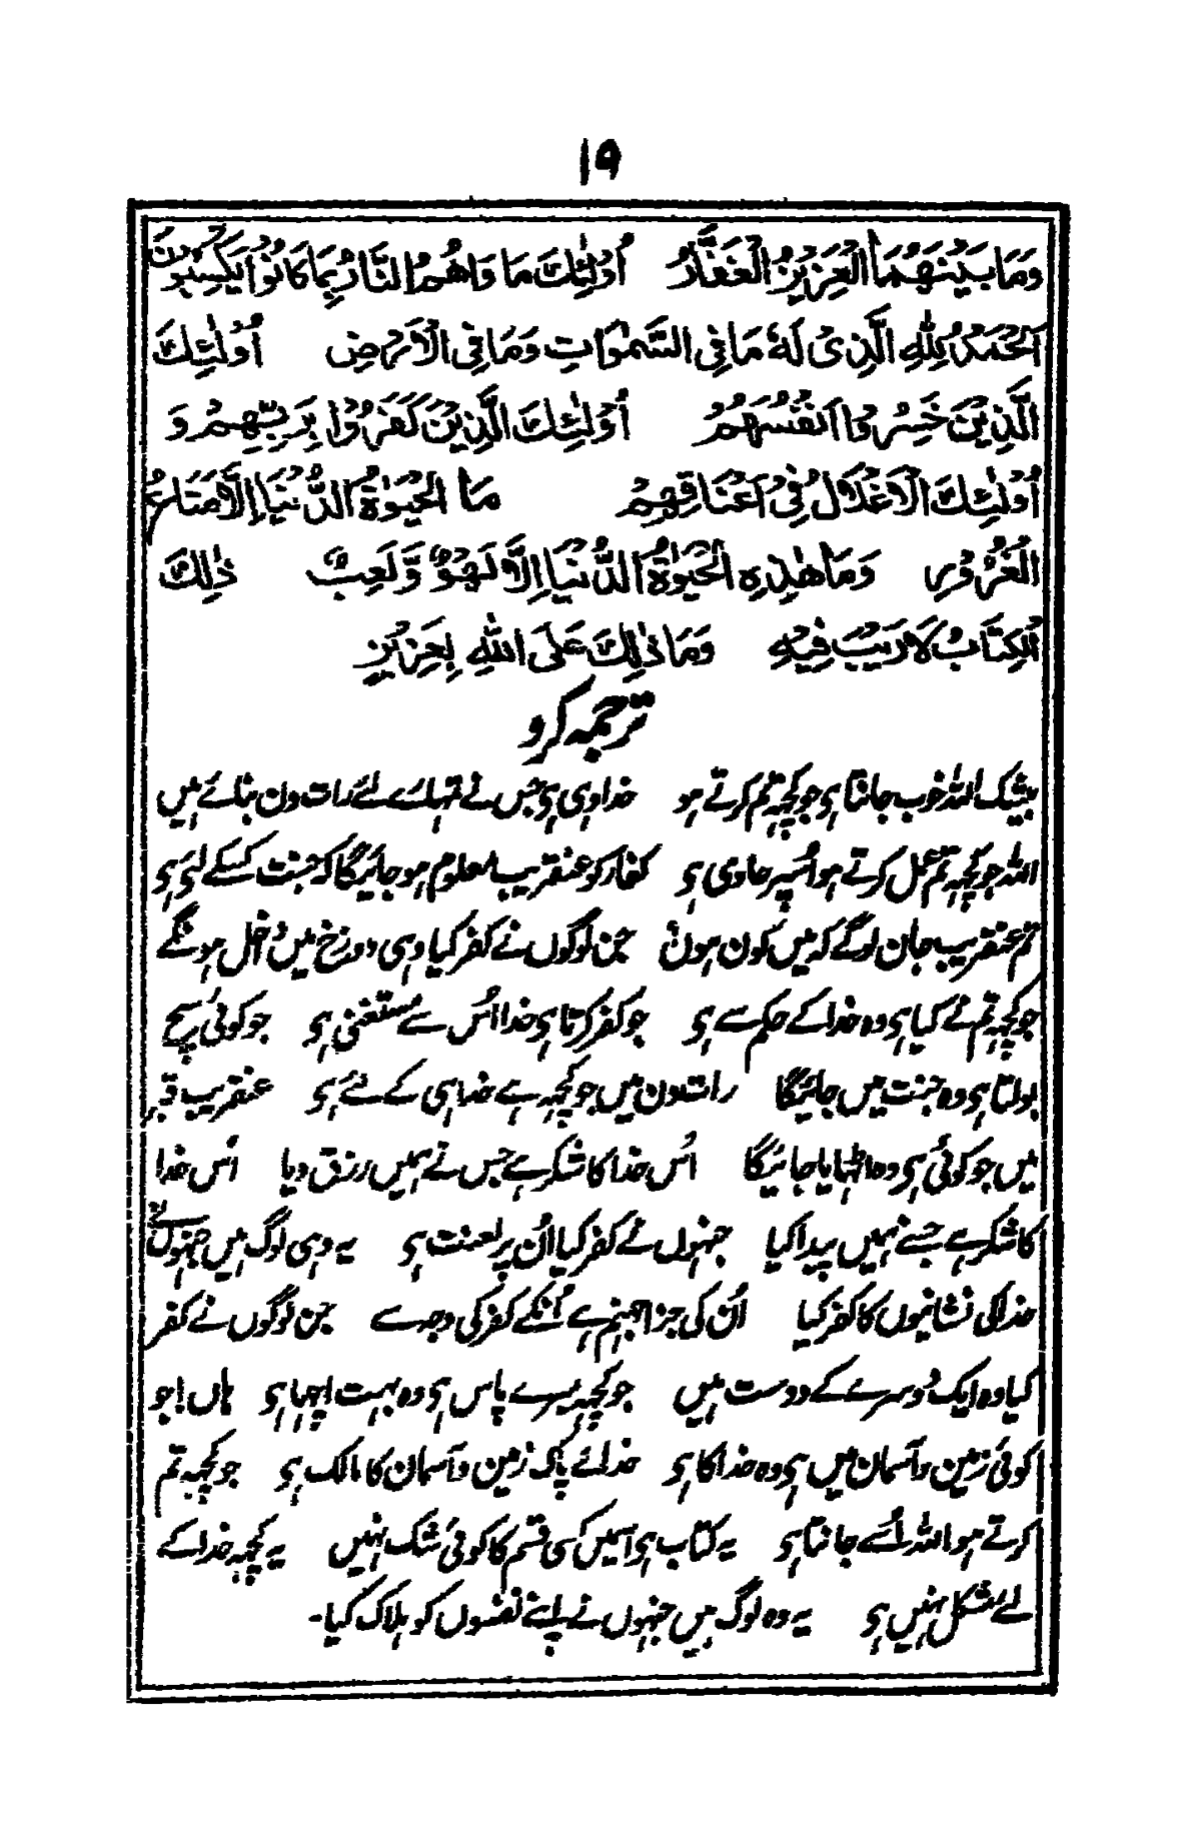 ۱۹
وَمَا بَيْنَهُمَا الْعَزِيْزُ الْغَفَّارُ اُوْلٰئِكَ مَا وَاهُمُ النَّارُ بِمَا كَانُوْا يَكْسِبُوْنَ
اَلْحَمْدُ لِلّٰهِ الَّذِىْ لَهٗ مَا فِى السَّمٰوَاتِ وَمَا فِى الْاَرْضِ اُوْلٰئِكَ
الَّذِيْنَ خَسِرُوْا اَنْفُسَهُمْ اُوْلٰئِكَ الَّذِيْنَ كَفَرُوْا بِرَبِّهِمْ وَ
اُوْلٰئِكَ الْاَغْلَالُ فِىْ اَعْنَاقِهِمْ مَا الْحَيٰوةُ الدُّنْيَا اِلَّا مَتَاعُ
الْغُرُوْرِ وَمَا هٰذِهِ الْحَيٰوةُ الدُّنْيَا اِلَّا لَهْوٌ وَّلَعِبٌ ذٰلِكَ
الْكِتَابُ لَا رَيْبَ فِيْهِ وَمَا ذٰلِكَ عَلَى اللّٰهِ بِعَزِيْزٍ
ترجمہ کرو
بیشک اللہ خوب جانتا ہی جو کچہہ تم کرتے ہو خدا وہی ہی جس نے تمہارے لئے رات دن بنائے ہیں
اللہ جو کچہہ تم عمل کرتے ہو اُسپر حاوی ہی کفار کو عنقریب معلوم ہو جائیگا کہ جنت کسکے لئے ہی
تم عنقریب جان لوگے کہ میں کون ہوں جن لوگوں نے کفر کیا وہی دوزخ میں داخل ہونگے
جو کچہہ تم نے کیا ہی وہ خدا کے حکم سے ہی جو کفر کرتا ہی خدا اُس سے مستغنی ہی جو کوئی سچ
بولتا ہی وہ جنت میں جائیگا رات دن میں جو کچہہ ہے خدا ہی کے لئے ہی عنقریب قبر
میں جو کوئی ہی وہ اٹہایا جائیگا اُس خدا کا شکر ہے جس نے ہمیں رزق دیا اُس خدا
کا شکر ہے جسنے ہمیں پیدا کیا جنہوں نے کفر کیا اُن پر لعنت ہی یہ وہی لوگ ہیں جنہوں نے
خدا کی نشانیوں کا کفر کیا اُن کی جزا جہنم ہے اُنکے کفر کی وجہ سے جن لوگوں نے کفر
کیا وہ ایک دُوسرے کے دوست ہیں جو کچہہ میرے پاس ہی وہ بہت اچہا ہی ہاں! جو
کوئی زمین و آسمان میں ہی وہ خدا کا ہی خدائے پاک زمین و آسمان کا مالک ہی جو کچہہ تم
کرتے ہو اللہ اُسے جانتا ہی یہ کتاب ہی اسمیں کسی قسم کا کوئی شک نہیں یہ کچہہ خدا کے
لئے مشکل نہیں ہی یہ وہ لوگ ہیں جنہوں نے اپنے نفسوں کو ہلاک کیا۔